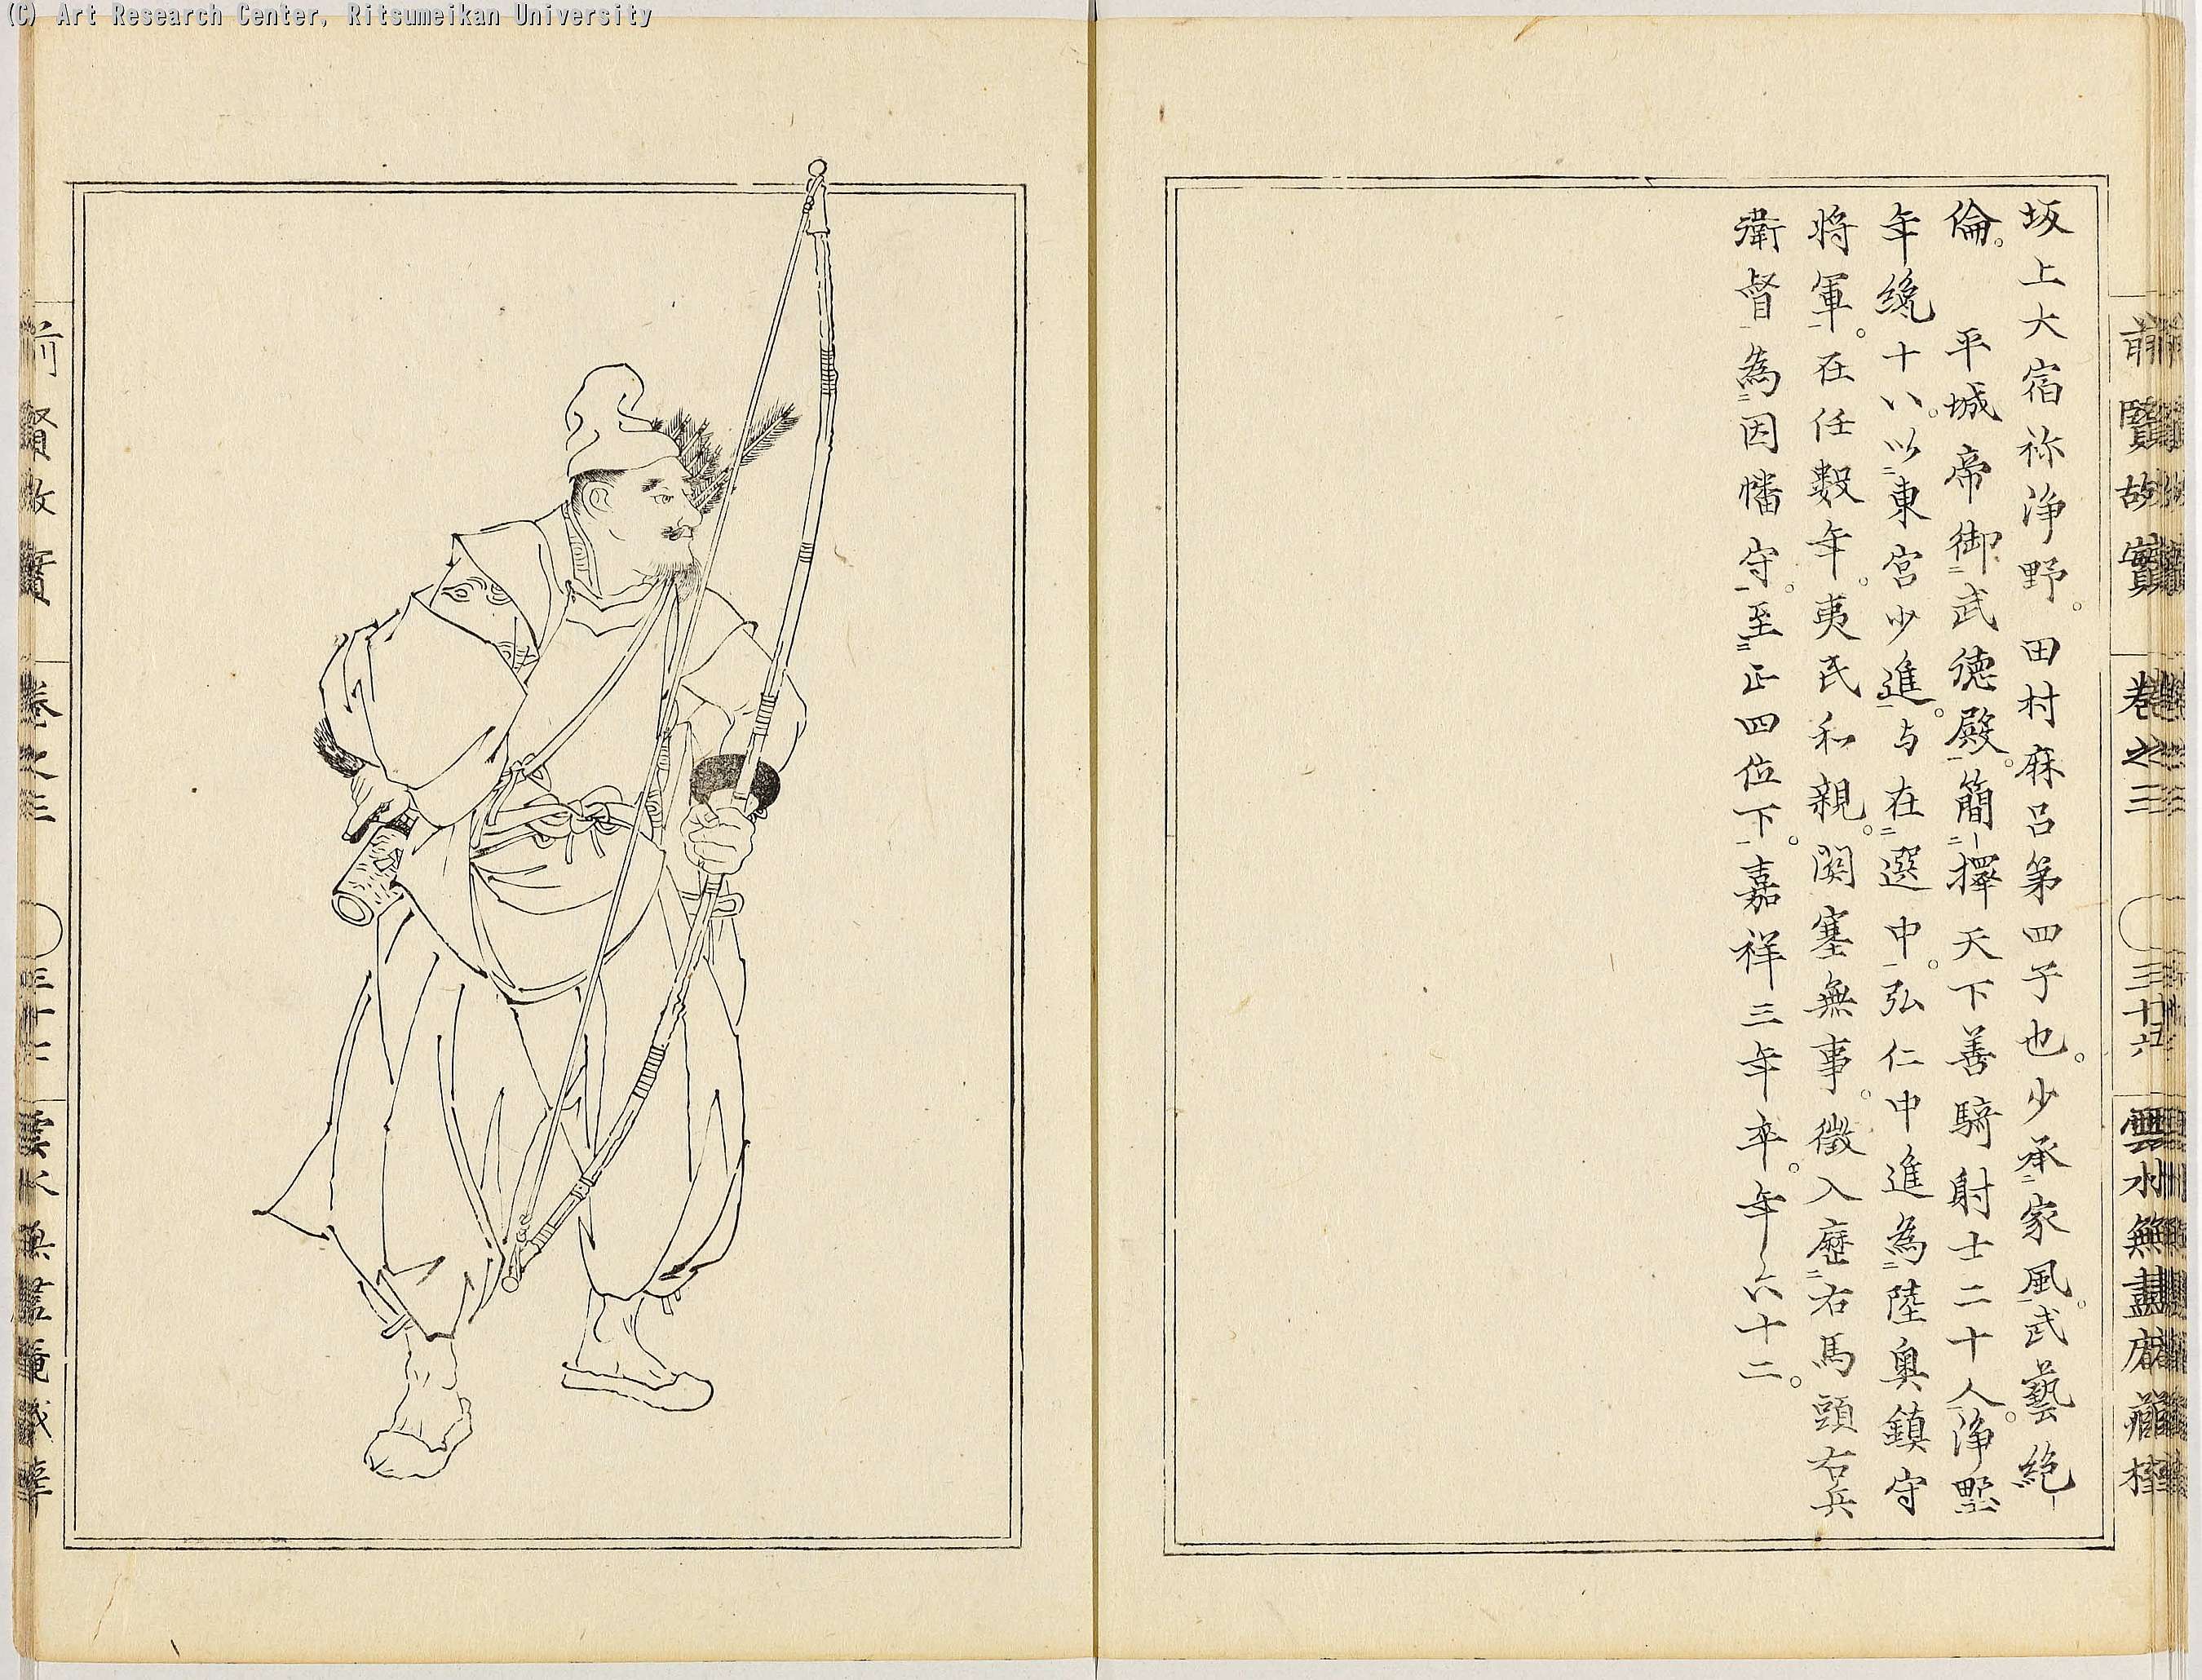 (C) Art Research Center, Ritsumeikan University
前賢故實 巻之三 三十六 雲水無盡庵藏梓
坂上大宿祢浄野。田村麻呂第四子也。少承二家風一。武藝絶
倫。 平城帝御二武徳殿一。簡二擇天下善騎射士二十人一。浄墅
年纔十八。以二東宮少進一。与在二選中一。弘仁中進為二陸奥鎮守
将軍一。在任数年。夷民和親。関塞無事。徴入歴二右馬頭右兵
衛督一為二因幡守一。至二正四位下一。嘉祥三年卒。年六十二。
前賢故實 巻之三